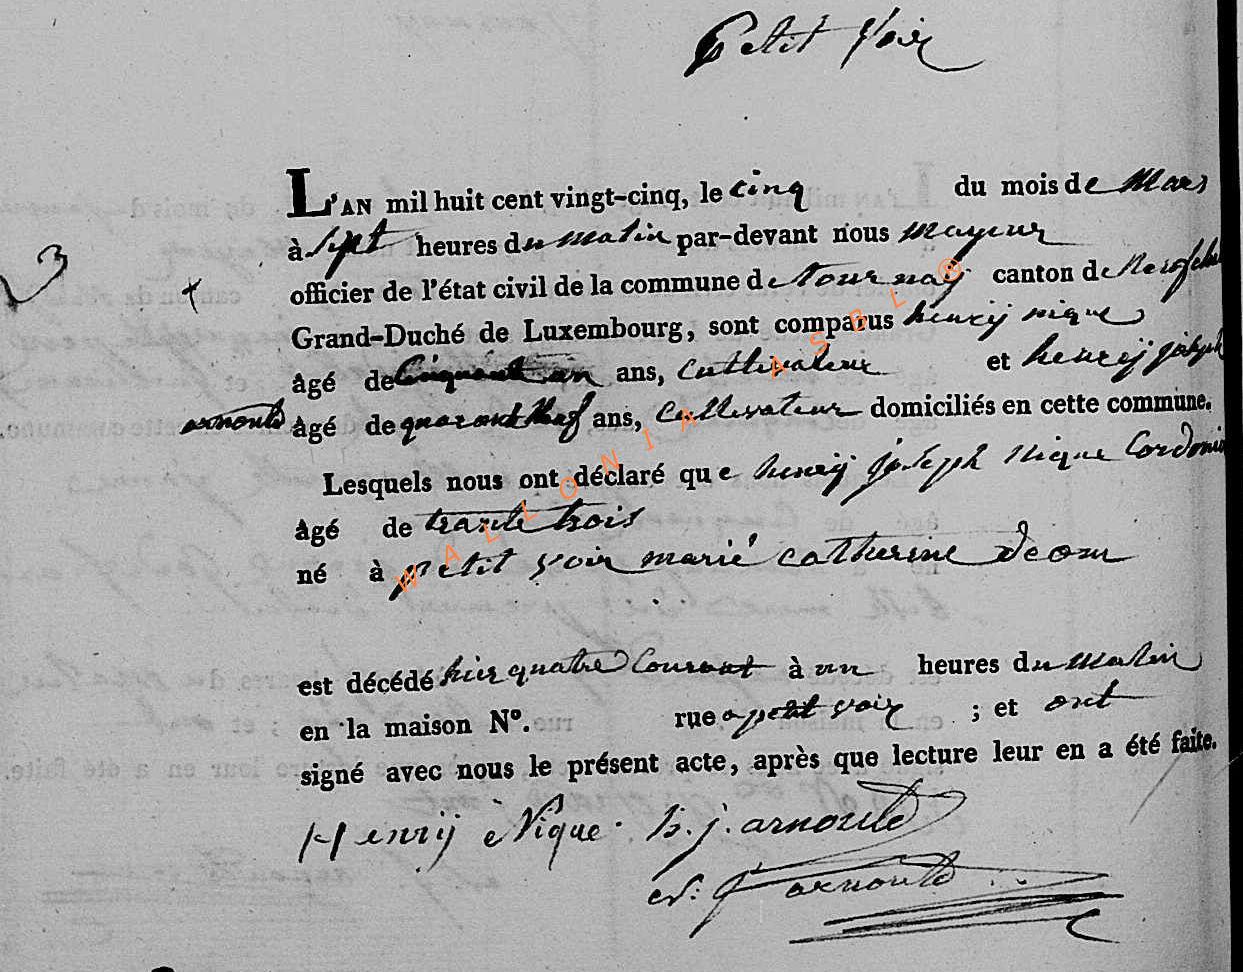 Petit Voir
L'AN mil huit cent vingt-cinq, le cinq du mois de Mars
à sept heures du matin par-devant nous mayeur
officier de l'état civil de la commune de tournay canton de
Grand-Duché de Luxembourg, sont comparus henrij nique
âgé de Cinquant un ans, Cultivateur et henrij joseph
arnould âgé de quarant neuf ans, Cultivateur domiciliés en cette commune.
Lesquels nous ont déclaré que henrij joseph Nique Cordonni
âgé de trante trois
né à petit voir marié catherine deom
est décédé hier quatre Courant à un heures du Matin
en la maison N°. rue a petit voir ; et ont
signé avec nous le présent acte, après que lecture leur en a été faite.
Henrij Nique. h. j. arnould
arnould
WALLONIA ASBL ®